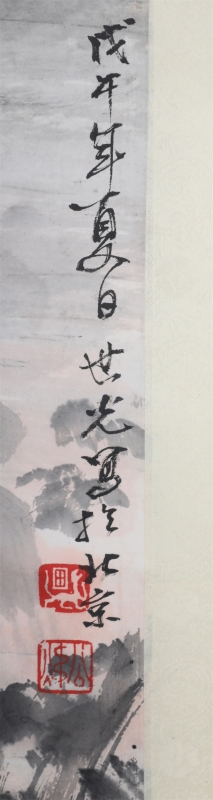 戊午年夏日世光写於北京